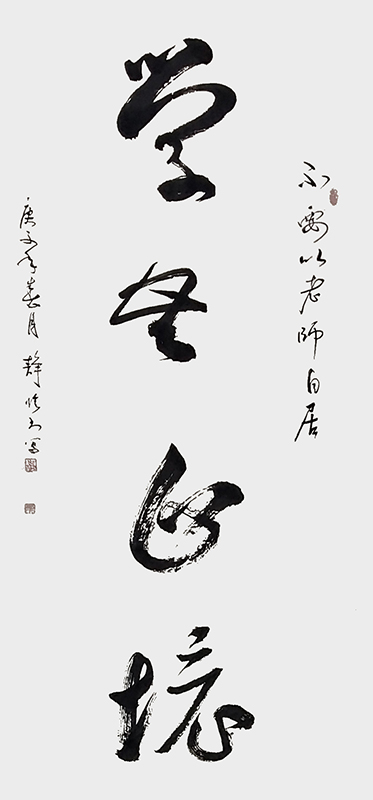 不要以老师自居
学无止境
庚子年春月 静